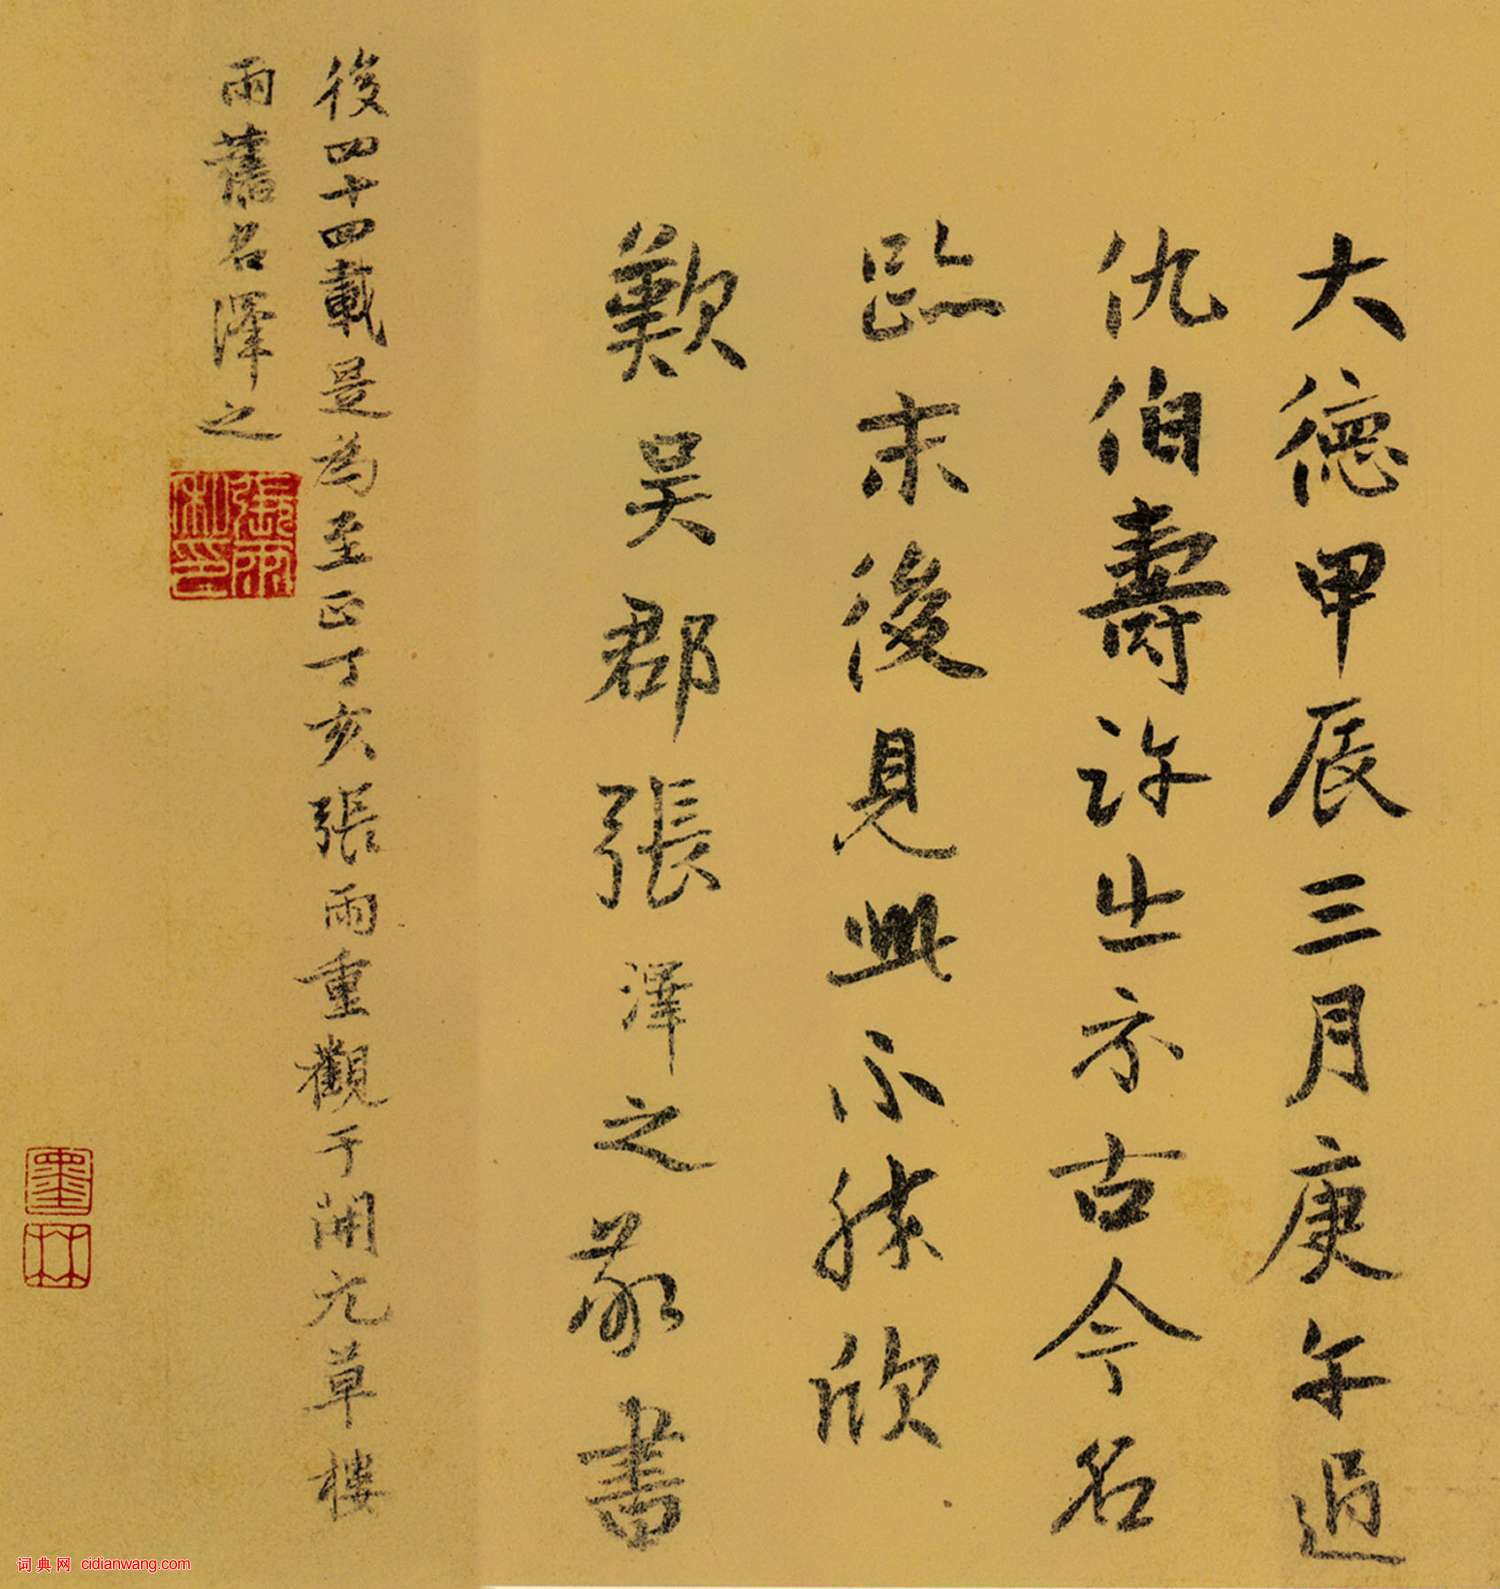 大德甲辰三月庚午過
仇伯壽許出示古今名
跡末後見此不勝欣
歎吴郡張澤之書
後四十四載是為至正丁亥張雨重觀于開元草樓
雨舊名澤之
張雨私印
墨林
词典网 cidianwang.com